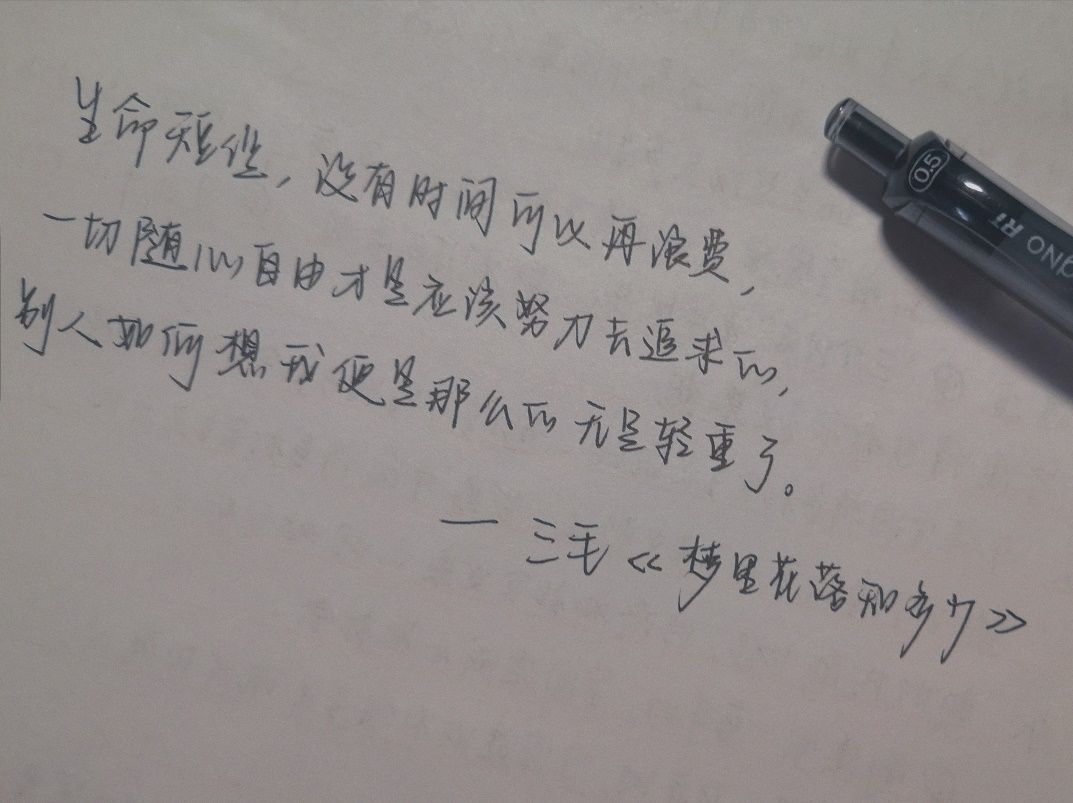 生命短促，没有时间可以再浪费，
一切随心自由才是应该努力去追求的，
别人如何想我便是那么的无足轻重了。
— 三毛《梦里花落知多少》
0.5
GNO RI